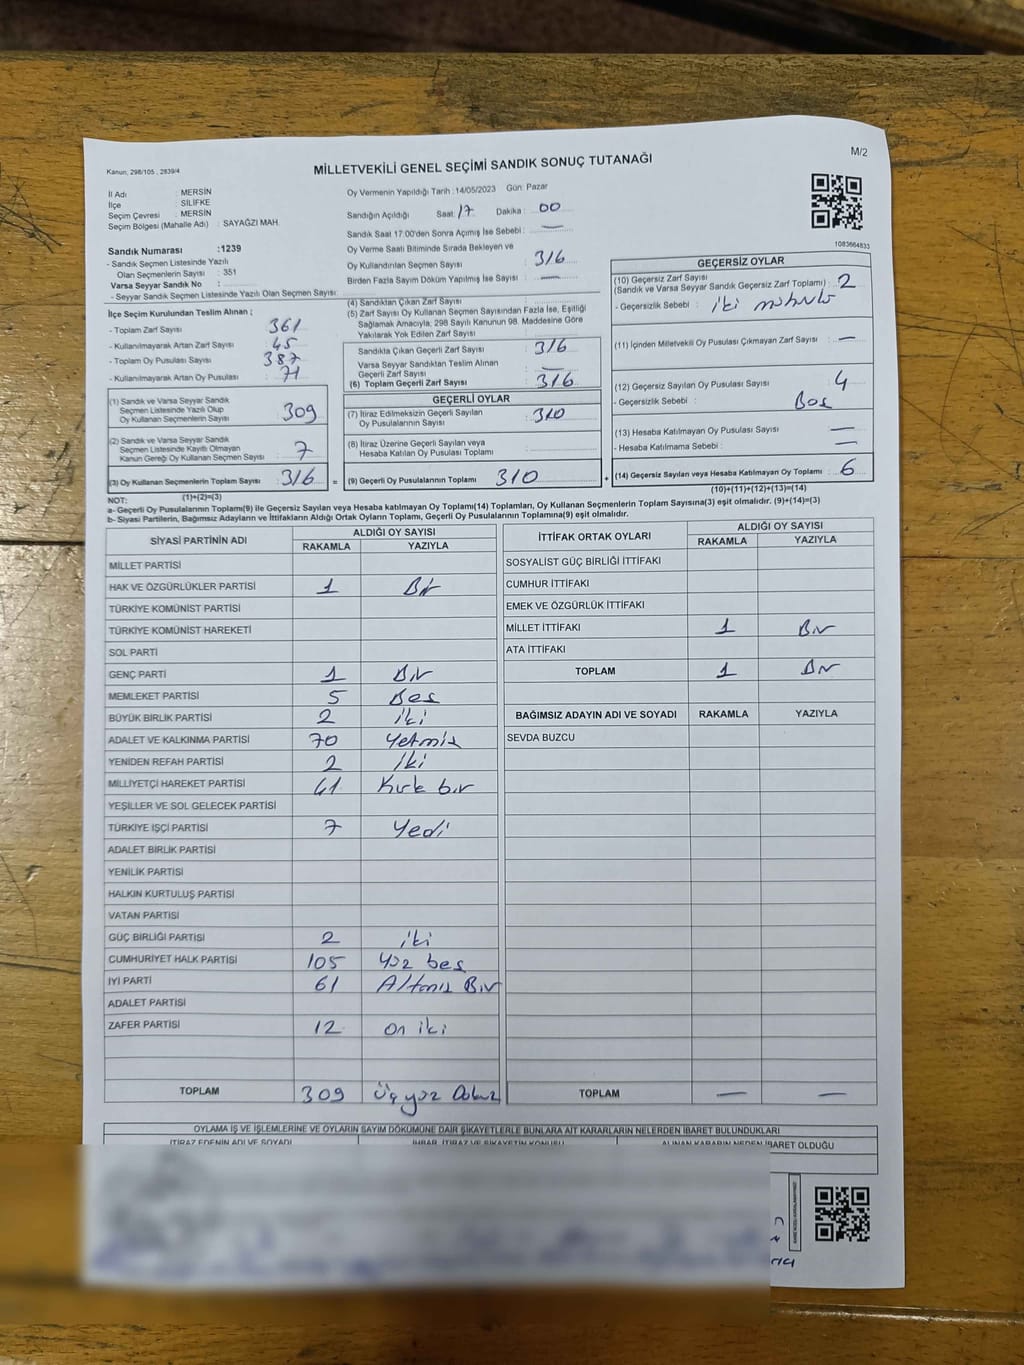 M/2
Kanun; 298/105 , 2839/4
MİLLETVEKİLİ GENEL SEÇİMİ SANDIK SONUÇ TUTANAĞI
İl Adı : MERSİN
İlçe : SİLİFKE
Seçim Çevresi : MERSİN
Seçim Bölgesi (Mahalle Adı) : SAYAĞZI MAH.
Sandık Numarası :1239
- Sandık Seçmen Listesinde Yazılı
Olan Seçmenlerin Sayısı : 351
Varsa Seyyar Sandık No :
- Seyyar Sandık Seçmen Listesinde Yazılı Olan Seçmen Sayısı:
Oy Vermenin Yapıldığı Tarih :14/05/2023 Gün: Pazar
Sandığın Açıldığı Saat: 17 Dakika : 00
Sandık Saat 17:00'den Sonra Açımış İse Sebebi : —
Oy Verme Saati Bitiminde Sırada Bekleyen ve
Oy Kullandırılan Seçmen Sayısı : 316
Birden Fazla Sayım Döküm Yapılmış İse Sayısı : —
1083664833
İlçe Seçim Kurulundan Teslim Alınan ;
- Toplam Zarf Sayısı : 361
- Kullanılmayarak Artan Zarf Sayısı : 45
- Toplam Oy Pusulası Sayısı : 387
- Kullanılmayarak Artan Oy Pusulası : 71
(1) Sandık ve Varsa Seyyar Sandık
Seçmen Listesinde Yazılı Olup
Oy Kullanan Seçmenlerin Sayısı : 309
(2) Sandık ve Varsa Seyyar Sandık
Seçmen Listesinde Kayıtlı Olmayan
Kanun Gereği Oy Kullanan Seçmen Sayısı : 7
(3) Oy Kullanan Seçmenlerin Toplam Sayısı : 316
(1)+(2)=(3)
(4) Sandıktan Çıkan Zarf Sayısı :
(5) Zarf Sayısı Oy Kullanan Seçmen Sayısından Fazla İse, Eşitliği
Sağlamak Amacıyla; 298 Sayılı Kanunun 98. Maddesine Göre
Yakılarak Yok Edilen Zarf Sayısı :
Sandıkta Çıkan Geçerli Zarf Sayısı : 316
Varsa Seyyar Sandıktan Teslim Alınan
Geçerli Zarf Sayısı : —
(6) Toplam Geçerli Zarf Sayısı : 316
GEÇERLİ OYLAR
(7) İtiraz Edilmeksizin Geçerli Sayılan
Oy Pusulalarının Sayısı : 310
(8) İtiraz Üzerine Geçerli Sayılan veya
Hesaba Katılan Oy Pusulası Toplamı :
= (9) Geçerli Oy Pusulalarının Toplamı : 310
GEÇERSİZ OYLAR
(10) Geçersiz Zarf Sayısı
(Sandık ve Varsa Seyyar Sandık Geçersiz Zarf Toplamı) : 2
- Geçersizlik Sebebi : iki
(11) İçinden Milletvekili Oy Pusulası Çıkmayan Zarf Sayısı : —
(12) Geçersiz Sayılan Oy Pusulası Sayısı : 4
- Geçersizlik Sebebi : Boş
(13) Hesaba Katılmayan Oy Pusulası Sayısı : —
- Hesaba Katılmama Sebebi : —
+ (14) Geçersiz Sayılan veya Hesaba Katılmayan Oy Toplamı : 6
(10)+(11)+(12)+(13)=(14)
NOT:
a- Geçerli Oy Pusulalarının Toplamı(9) ile Geçersiz Sayılan veya Hesaba katılmayan Oy Toplamı(14) Toplamları, Oy Kullanan Seçmenlerin Toplam Sayısına(3) eşit olmalıdır. (9)+(14)=(3)
b- Siyasi Partilerin, Bağımsız Adayların ve İttifakların Aldığı Ortak Oyların Toplamı, Geçerli Oy Pusulalarının Toplamına(9) eşit olmalıdır.
SİYASİ PARTİNİN ADI ALDIĞI OY SAYISI
RAKAMLA YAZIYLA
MİLLET PARTİSİ
HAK VE ÖZGÜRLÜKLER PARTİSİ 1 Bir
TÜRKİYE KOMÜNİST PARTİSİ
TÜRKİYE KOMÜNİST HAREKETİ
SOL PARTİ
GENÇ PARTİ 1 Bir
MEMLEKET PARTİSİ 5 Beş
BÜYÜK BİRLİK PARTİSİ 2 iki
ADALET VE KALKINMA PARTİSİ 70 Yetmiş
YENİDEN REFAH PARTİSİ 2 iki
MİLLİYETÇİ HAREKET PARTİSİ 41 Kırk bir
YEŞİLLER VE SOL GELECEK PARTİSİ
TÜRKİYE İŞÇİ PARTİSİ 7 Yedi
ADALET BİRLİK PARTİSİ
YENİLİK PARTİSİ
HALKIN KURTULUŞ PARTİSİ
VATAN PARTİSİ
GÜÇ BİRLİĞİ PARTİSİ 2 iki
CUMHURİYET HALK PARTİSİ 105 Yüz beş
İYİ PARTİ 61 Altmış Bir
ADALET PARTİSİ
ZAFER PARTİSİ 12 on iki
TOPLAM 309 Üç yüz Dokuz
İTTİFAK ORTAK OYLARI ALDIĞI OY SAYISI
RAKAMLA YAZIYLA
SOSYALİST GÜÇ BİRLİĞİ İTTİFAKI
CUMHUR İTTİFAKI
EMEK VE ÖZGÜRLÜK İTTİFAKI
MİLLET İTTİFAKI 1 Bir
ATA İTTİFAKI
TOPLAM 1 Bir
BAĞIMSIZ ADAYIN ADI VE SOYADI RAKAMLA YAZIYLA
SEVDA BUZCU
TOPLAM — —
OYLAMA İŞ VE İŞLEMLERİNE VE OYLARIN SAYIM DÖKÜMÜNE DAİR ŞİKAYETLERLE BUNLARA AİT KARARLARIN NELERDEN İBARET BULUNDUKLARI
İTİRAZ EDENİN ADI VE SOYADI İHBAR, İTİRAZ VE ŞİKAYETİN KONUSU ALINAN KARARIN NEDEN İBARET OLDUĞU